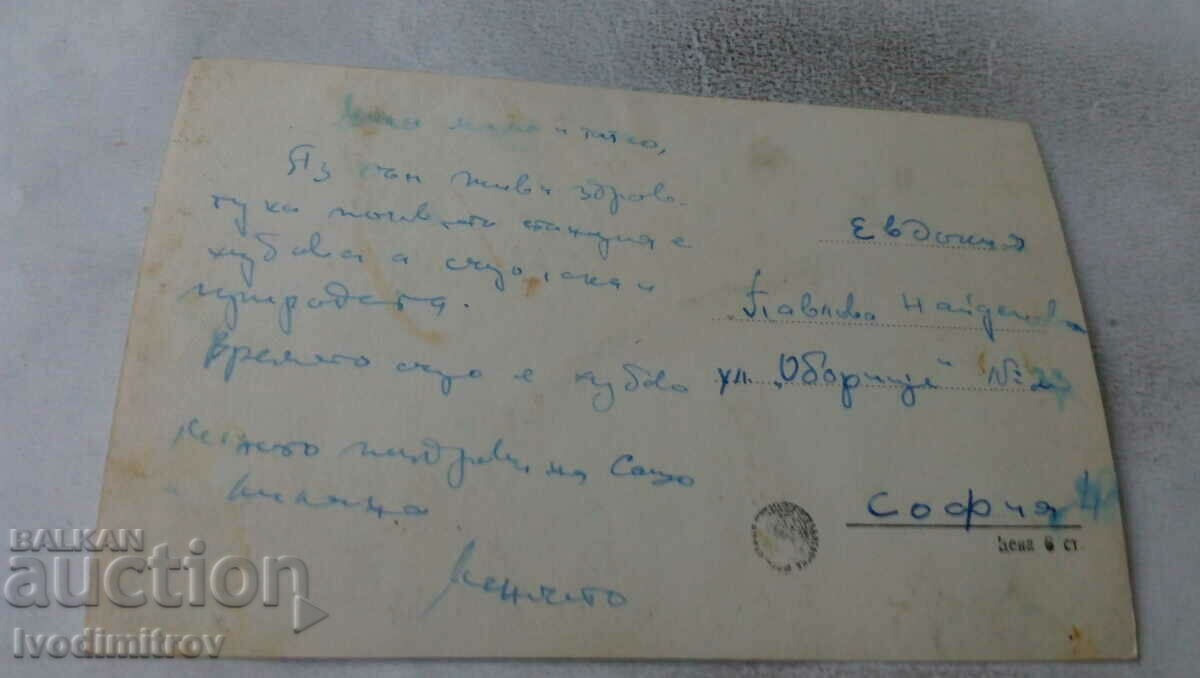 мама и татко,
Яз съм жив и здрав.
тука почивната станция е
хубава а също така и
природата.
Времето също е хубаво
поздрави на Сашо
Евдокия
Павлова Найденова
ул. „Оборище" №
София
Цена 6 ст.
BALKAN
auction
Ivodimitrov